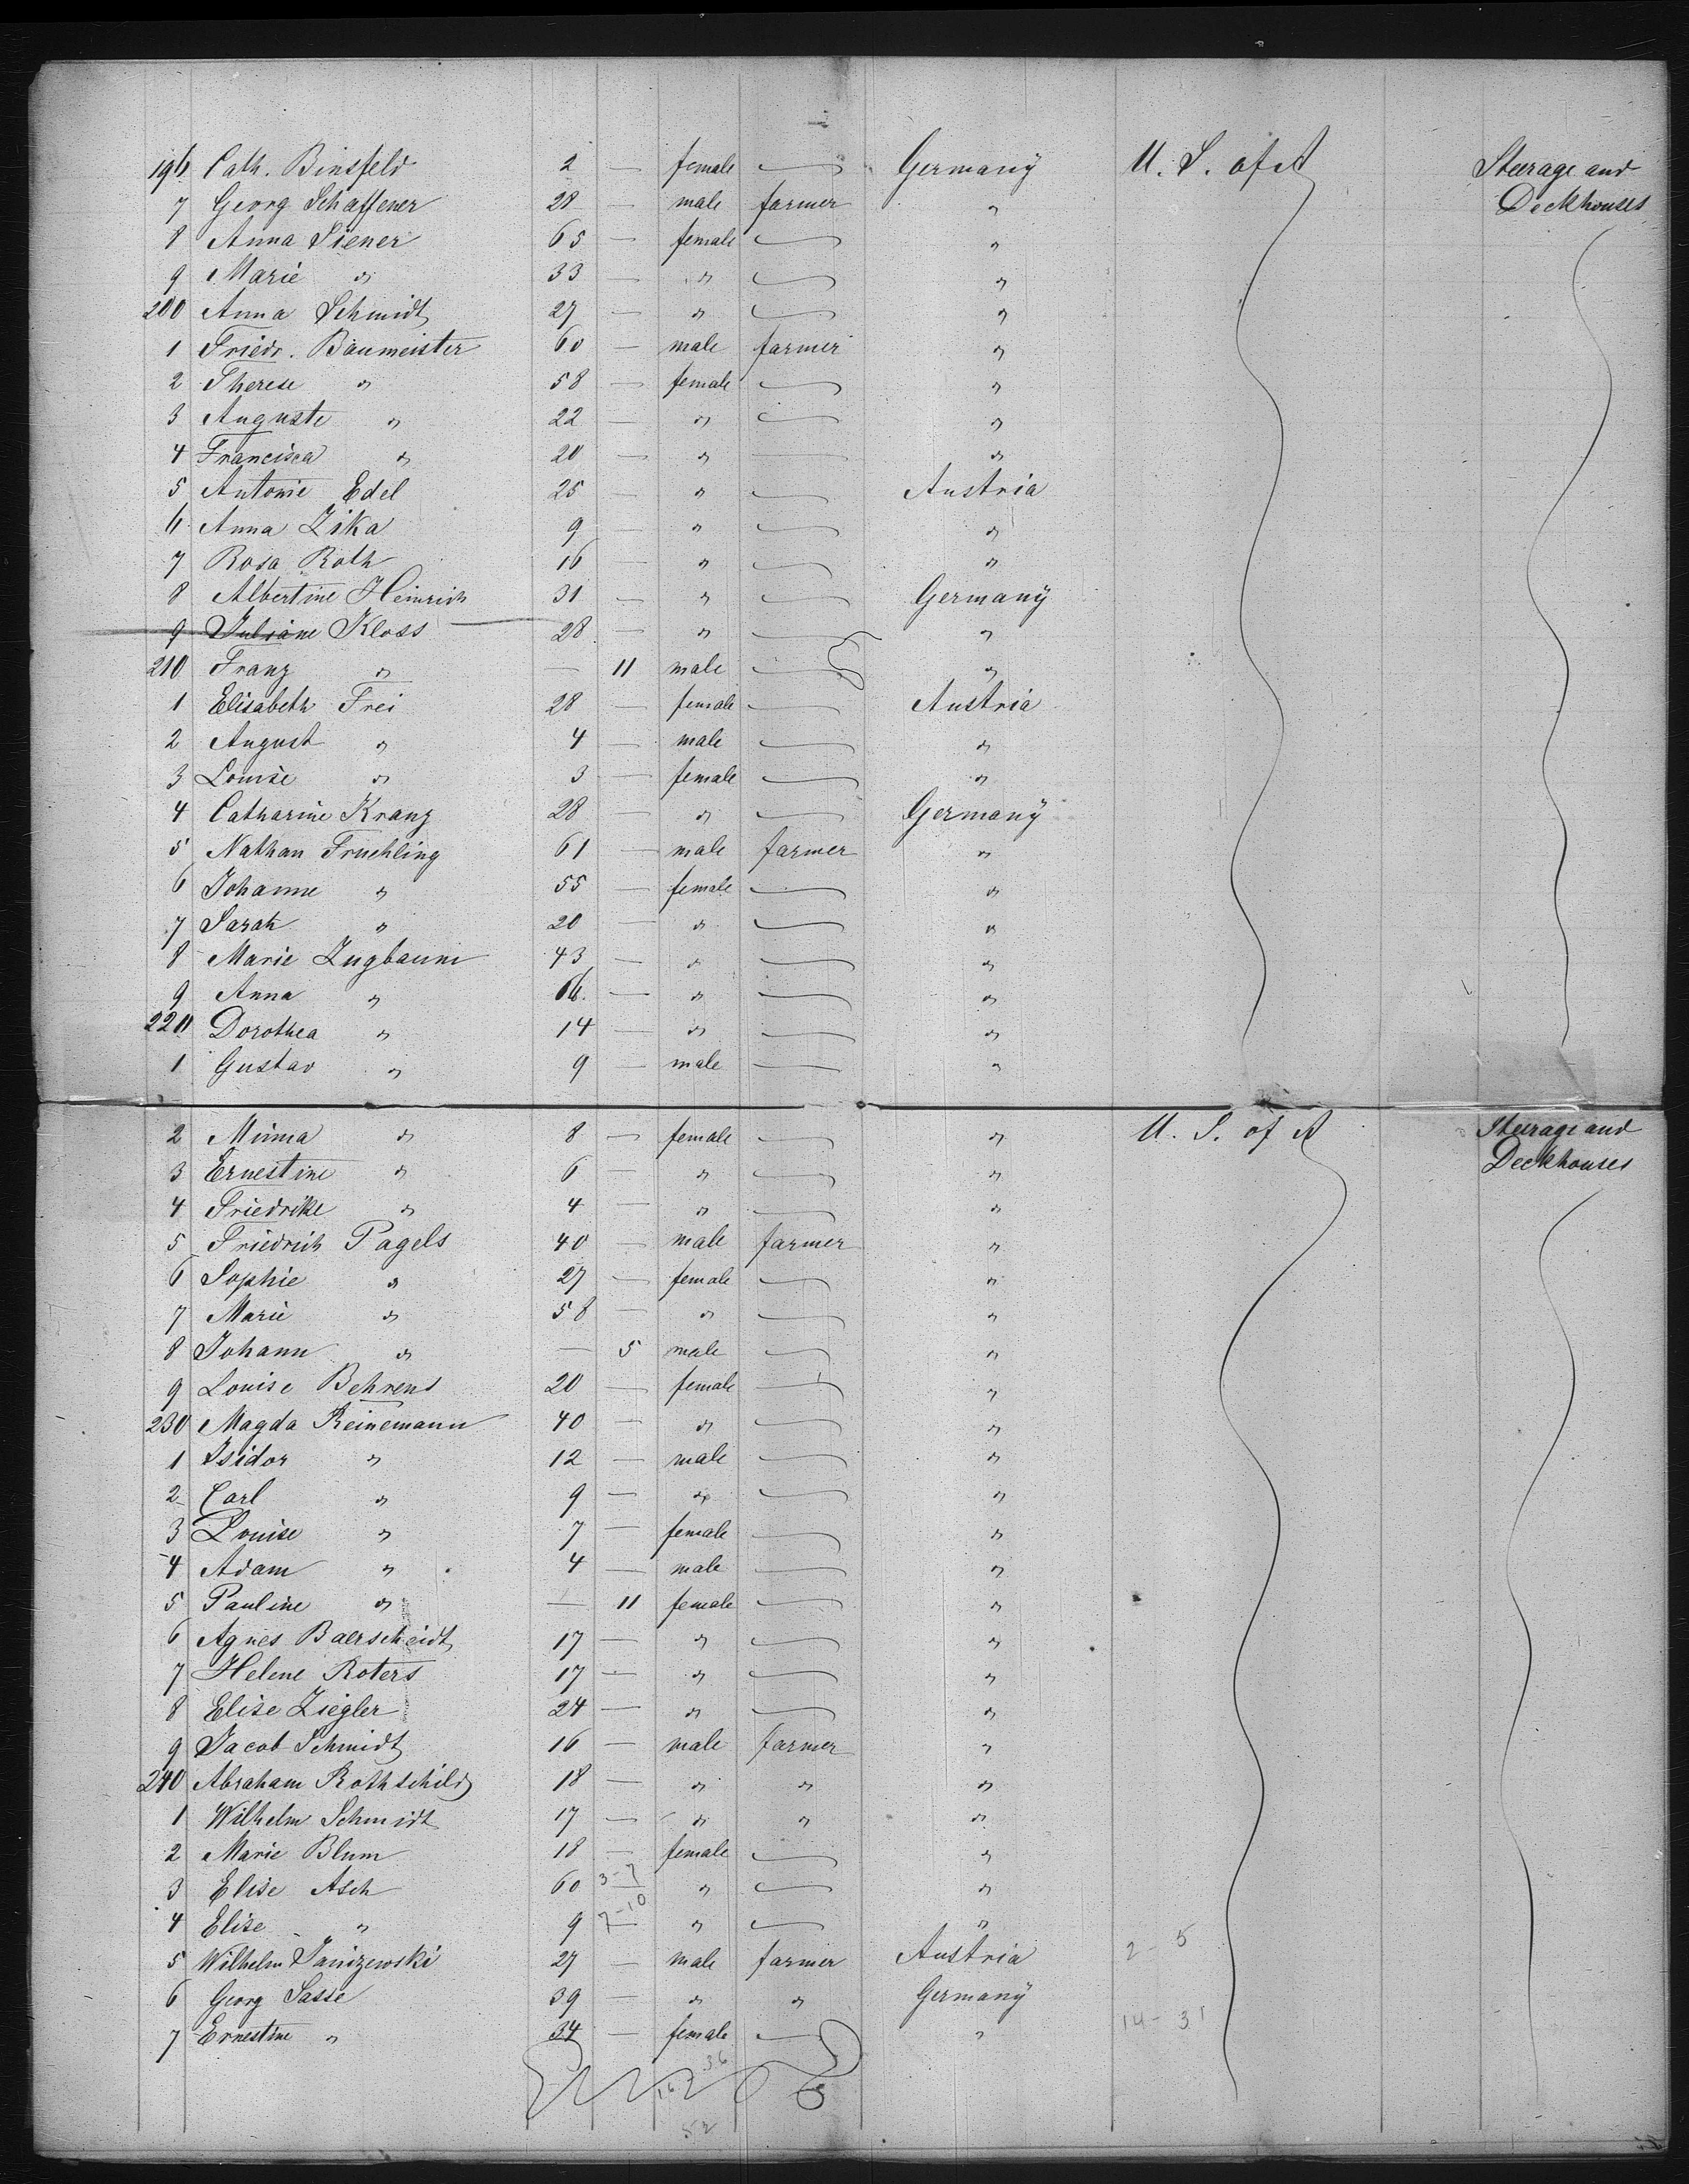 196 Cath. Binsfeld 2 — female — Germany U. S. of A Steerage and
7 Georg Schaffener 28 — male farmer " Deckhouses
8 Anna Siener 65 — female — "
9 Marie " 33 — " — "
200 Anna Schmidt 27 — " — "
1 Friedr. Baumeister 60 — male farmer "
2 Therese " 58 — female — "
3 Auguste " 22 — " — "
4 Francisca " 20 — " — "
5 Antonie Edel 25 — " — Austria
6 Anna Zika 9 — " — "
7 Rosa Roth 16 — " — "
8 Albertine Heinrich 31 — " — Germany
9 Juliane Kloss 28 — " — "
210 Franz " — 11 male — "
1 Elisabeth Frei 28 — female — Austria
2 August " 4 — male — "
3 Louise " 3 — female — "
4 Catharine Kranz 28 — " — Germany
5 Nathan Fruehling 61 — male farmer "
6 Johanne " 55 — female — "
7 Sarah " 20 — " — "
8 Marie Zugbaum 43 — " — "
9 Anna " 16 — " — "
220 Dorothea " 14 — " — "
1 Gustav " 9 — male — "
2 Minna " 8 — female — " U. S. of A Steerage and
3 Ernestine " 6 — " — " Deckhouses
4 Friedrike " 4 — " — "
5 Friedrich Pagels 40 — male farmer "
6 Sophie " 27 — female — "
7 Marie " 58 — " — "
8 Johann " — 5 male — "
9 Louise Behrens 20 — female — "
230 Magda Reinemann 40 — " — "
1 Isidor " 12 — male — "
2 Carl " 9 — " — "
3 Louise " 7 — female — "
4 Adam " 4 — male — "
5 Pauline " — 11 female — "
6 Agnes Baerscheidt 17 — " — "
7 Helene Roters 17 — " — "
8 Elise Ziegler 24 — " — "
9 Jacob Schmidt 16 — male farmer "
240 Abraham Rothschild 18 — " " "
1 Wilhelm Schmidt 17 — " " "
2 Marie Blum 18 — female — "
3 Elise Asch 60 3-7 " — "
4 Elise " 9 7-10 " — "
5 Wilhelm Janizewski 27 — male farmer Austria 2-5
6 Georg Sasse 39 — " " Germany
7 Ernestine " 34 — female — " 14-31
16 36
52